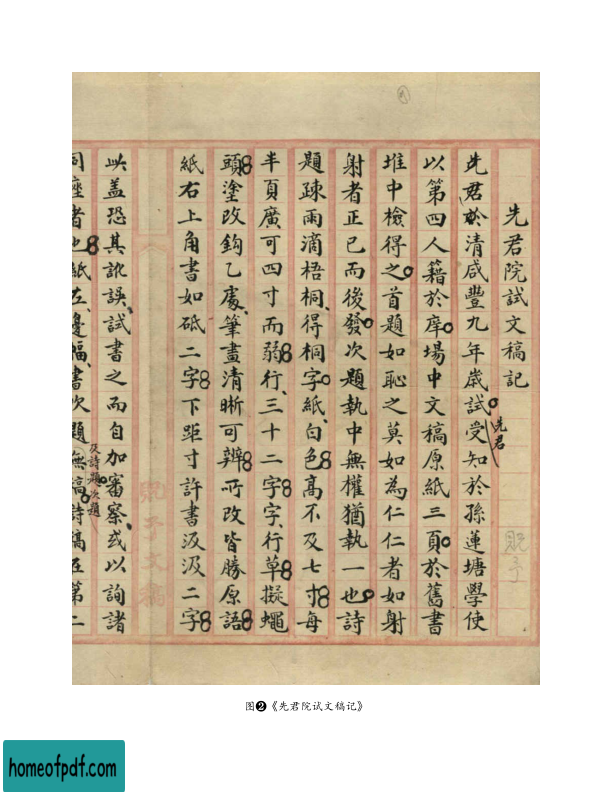 先君院試文稿記
貺予
先君於清咸豐九年歲試受知於孫蓮塘學使
先君
以第四人籍於庠場中文稿原紙三頁於舊書
堆中檢得之首題如恥之莫如為仁仁者如射
射者正己而後發次題執中無權猶執一也詩
題疎雨滴梧桐得桐字紙白色高不及七寸每
半頁廣可四寸而弱行三十二字字行草擬蠅
頭塗改鈎乙處筆畫清晰可辨所改皆勝原語
紙右上角書如砥二字下距寸許書汲汲二字
貺予文稿
此盖恐其訛誤試書之而自加審察或以詢諸
及詩題次題
同座者也紙左邊幅書次題無稿詩稿在第二
图❷《先君院试文稿记》
homeofpdf.com